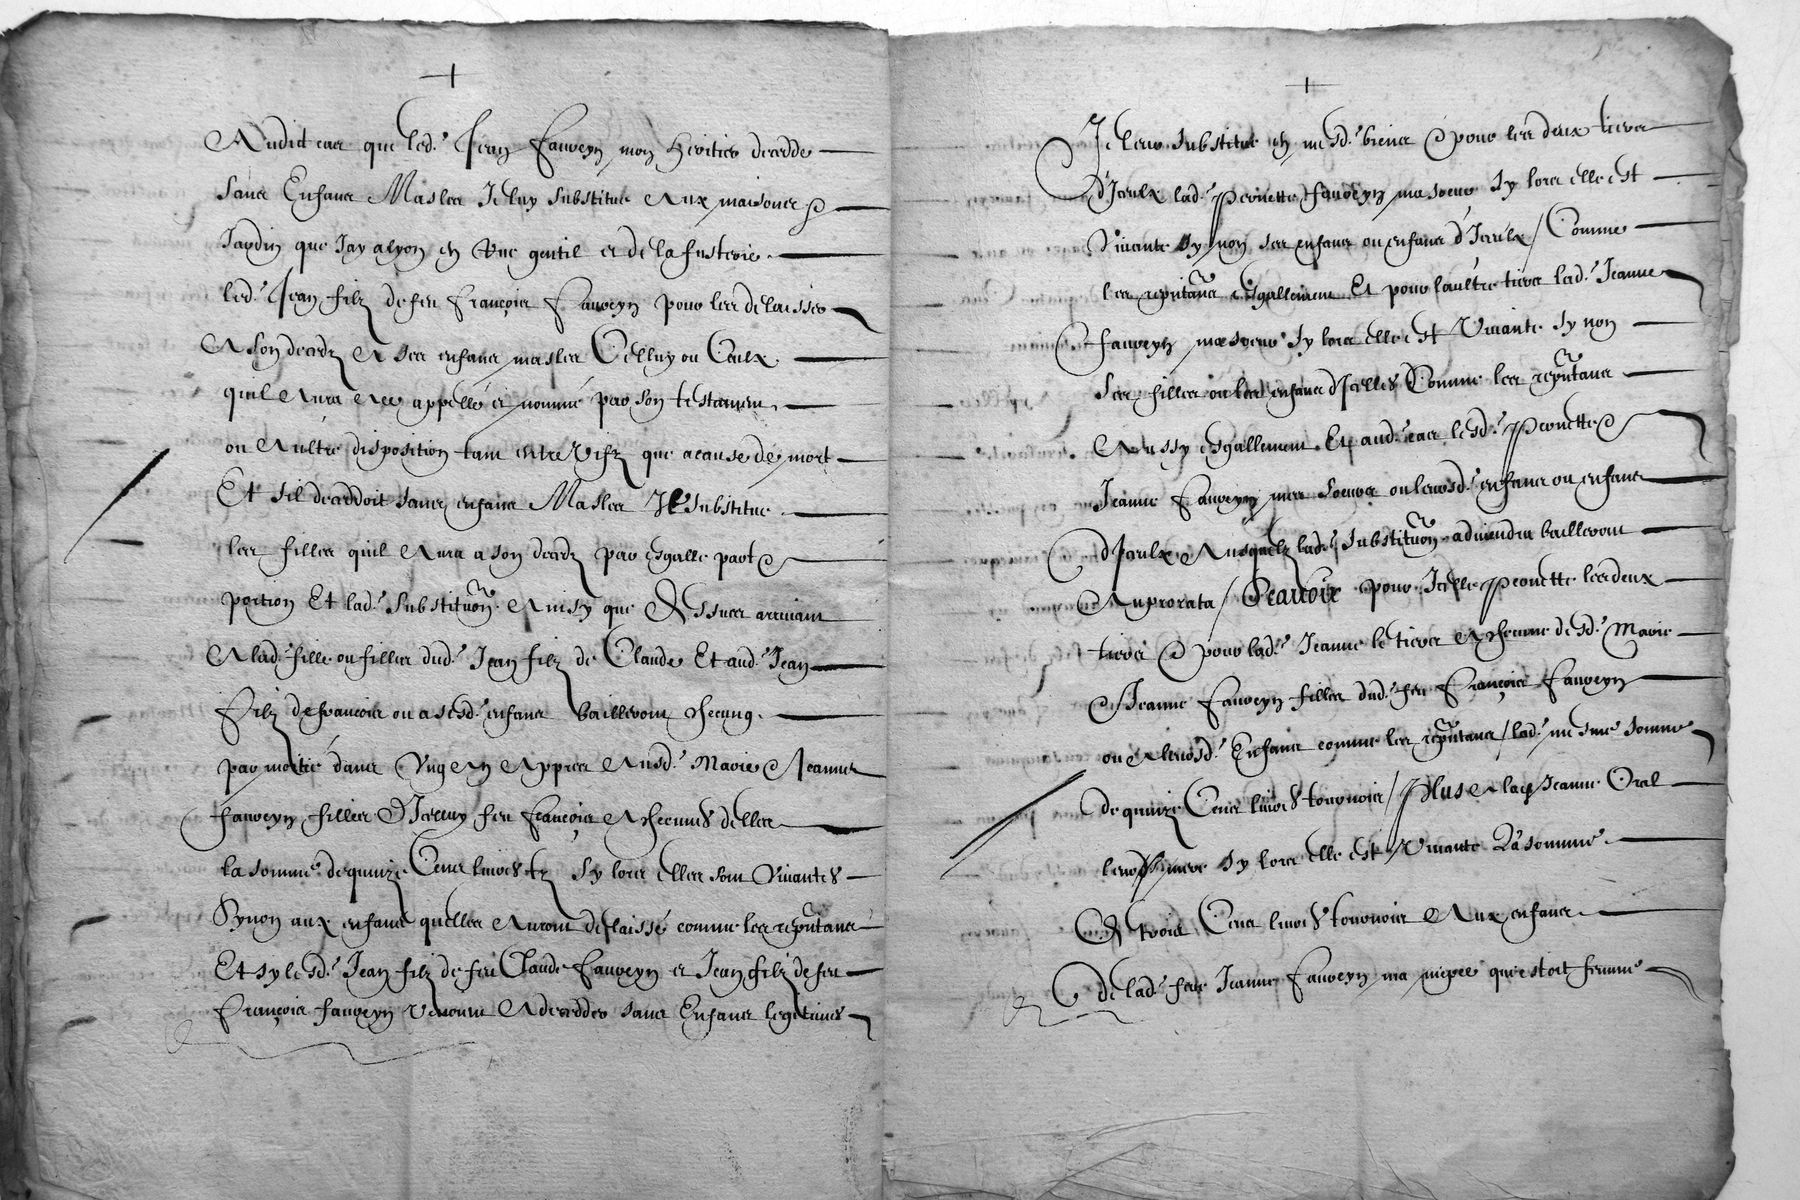 Audict cas que led. Jean Faureyn mon heritier decedde
sans Enfans Masles Je luy substitue Aux maisons &
Jardin que Jay alyon en Rue gentil et de la fusterie.
led. Jean filz de feu François Faureyn pour les delaisser
A son decedz A ses enfans masles Celluy ou Ceulx
quil Aura Alé appellé et nommé par son testament,
ou Aultre disposition tant entre vifz que a cause de mort
Et sil deceddoit sans enfans Masles Je substitue
les filles quil Aura a son decedz par esgalle part &
portion Et lad. substituon. Ainsy que dessus arrivant
A lad. fille ou filles dud. Jean filz de Claude Et aud. Jean
filz de francois ou a sesd. enfans bailleront checung.
par moitié dans Ung An Appres Ausd. Marie & Jeanne
faureyn filles d'Jcelluy feu françois A checune delles
la somme de quinze Cens livres tz sy lors elles sont vivantes
Synon aux enfans quelles Auront delaissé comme les repntans
Et sy lesd. Jean filz de feu Claude Faureyn et Jean filz de feu
François faureyn venoient A decedder sans Enfans legitimes
Je leur substitue en mesd. biens & pour les deux tiers
d'Jceulx lad. Pernette faureyn ma soeur sy lors elle est
vivante sy non ses enfans ou enfans d'Jceulx / Comme
les repntans esgallement Et pour l'aultre tiers lad. Jeanne
faureyn ma soeur sy lors elle est vivante sy non
Ses filles ou les enfans d'Jcelles Comme les repntans
Aussy esgallement Et aud. cas lesd. Pernette &
Jeanne Faureyn mes soeurs ou leursd. enfans ou enfans
d'Jceulx Ausquelz lad. substituon adviendra bailleront
Auprorata / Scavoir pour Jcelle Pernette les deux
tiers & pour lad. Jeanne le tiers A checune desd. Marie
& Jeanne Faureyn filles dud. feu François Faureyn
ou A leursd. Enfans comme les repntans / lad. mesme somme
de quinze Cens livres tournois / Plus A Jeanne
leur mere sy lors elle est vivante La somme
De trois Cens livres tournois Aux enfans
De lad. feue Jeanne Faureyn ma niepce que estoit femme